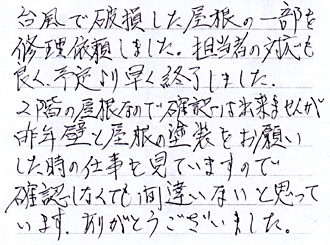 台風で破損した屋根の一部を
修理依頼しました。担当者の対応も
良く、予定より早く終了しました。
2階の屋根なので確認は出来ませんが
昨年壁と屋根の塗装をお願い
した時の仕事を見ていますので
確認しなくても間違いないと思って
います。ありがとうございました。